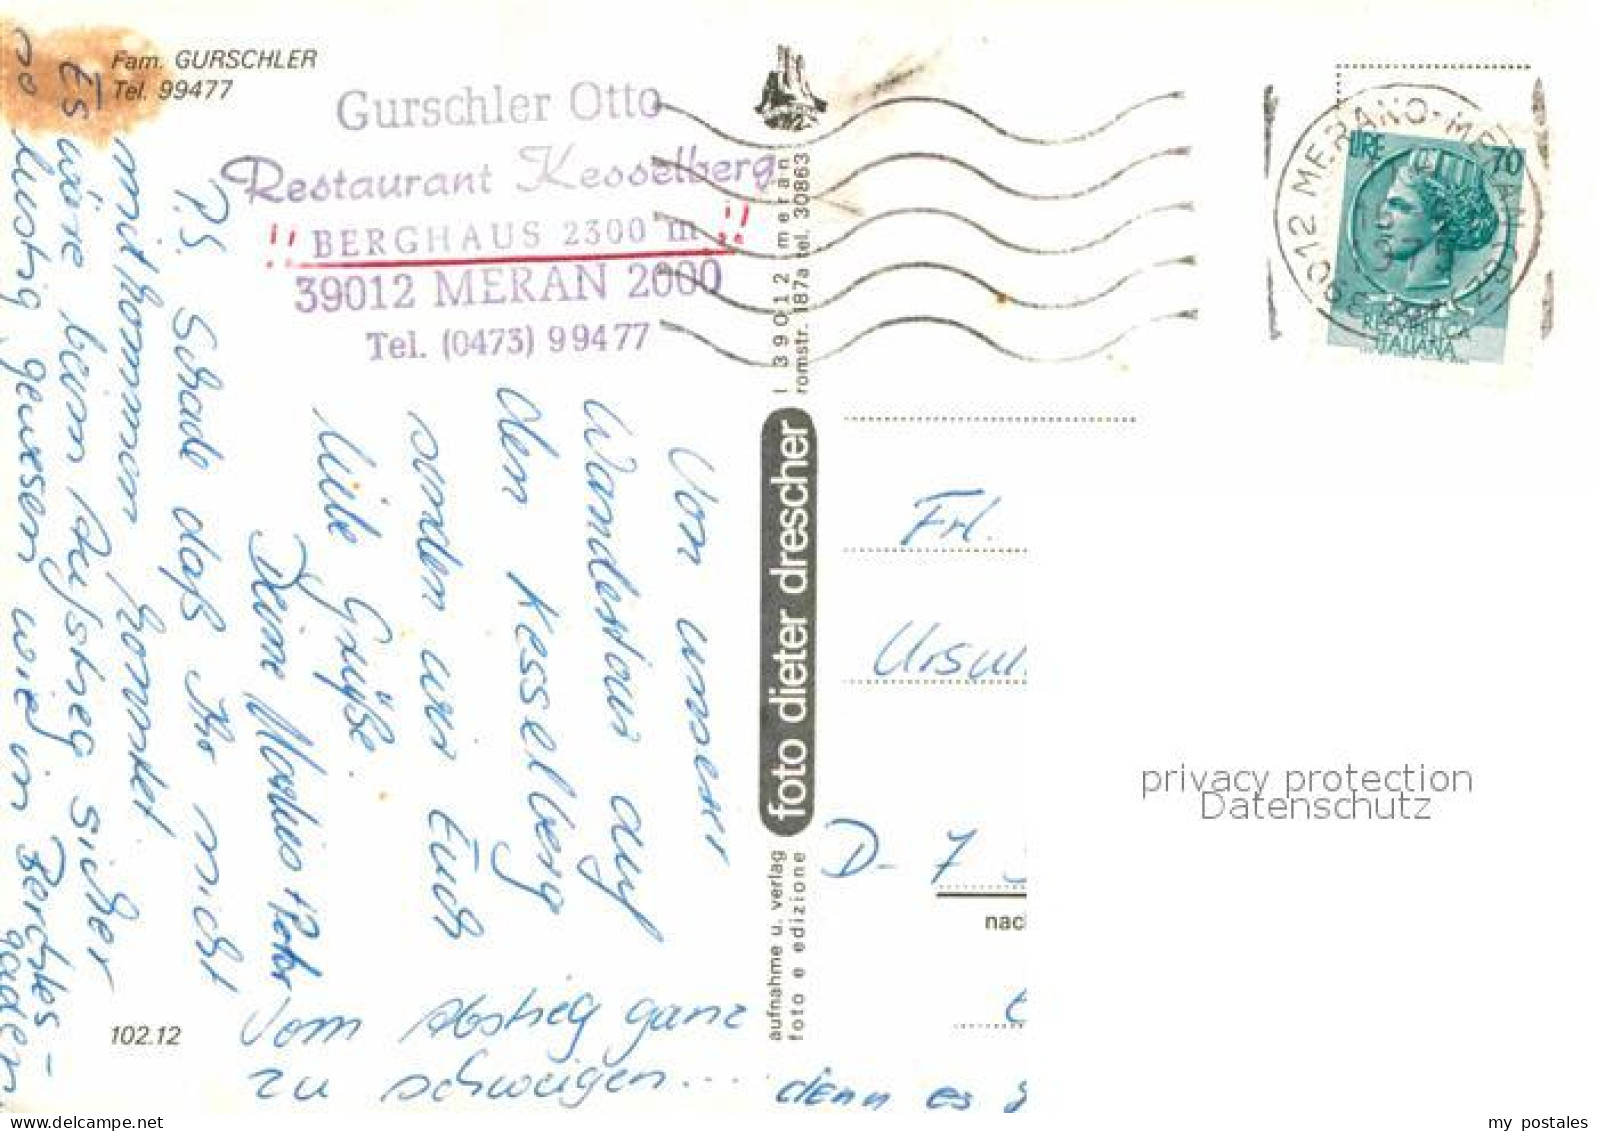 Fam. GURSCHLER
Tel. 99477
Gurschler Otto
Restaurant Kesselberg
!! BERGHAUS 2300 m !!
39012 MERAN 2000
Tel. (0473) 99477
Von unserer
Wanderstour auf
den Kesselberg
senden wir Euch
Viele Grüße
Deine Markus + Peter
P.S. Schade daß Ihr nicht
mitkommen konntet
Es wäre beim Aufstieg sicher
so lustig gewesen wie in Berchtes-
gaden
Vom Abstieg ganz
zu schweigen...
denn es
102.12
I 39012 meran
romstr. 187a tel. 30863
foto dieter drescher
aufnahme u. verlag
foto e edizione
39012 MERANO-MERAN (BZ)
LIRE 70
REPVBBLICA
ITALIANA
Frl.
D-7
privacy protection
Datenschutz
my postales